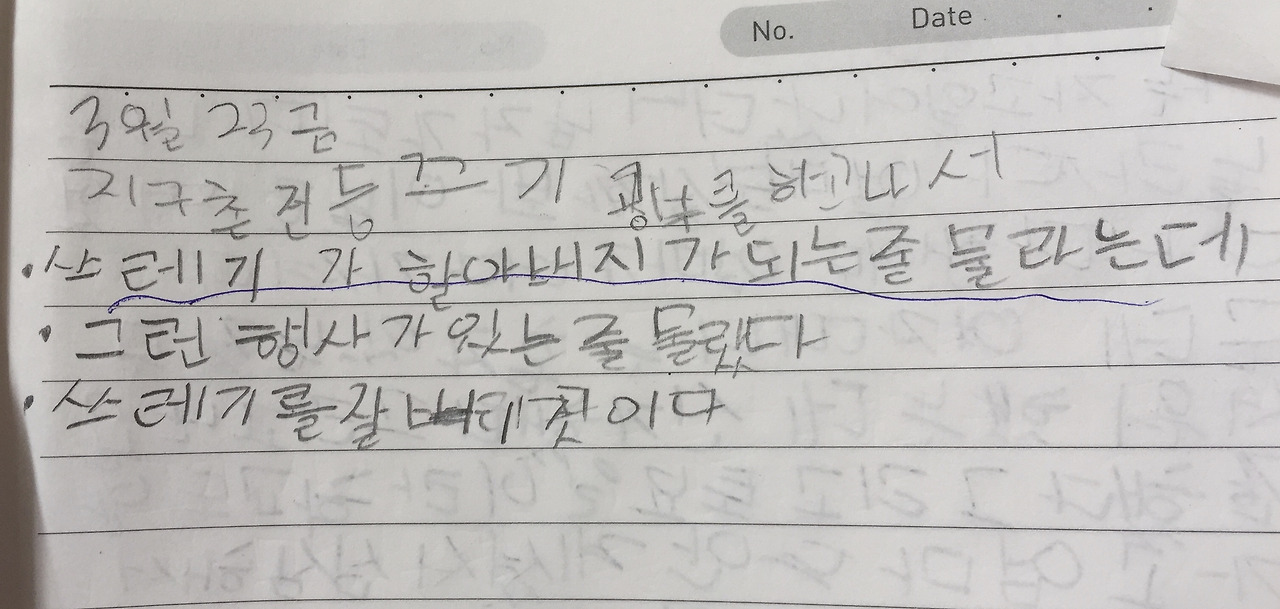 No. Date
3월 23 금
지구촌 전등 끄기 공부를 하고나서
· 쓰레기가 할아버지가 되는줄 물라는데
· 그런 행사가 있는 줄 몰랐다
· 쓰레기를 잘 이다